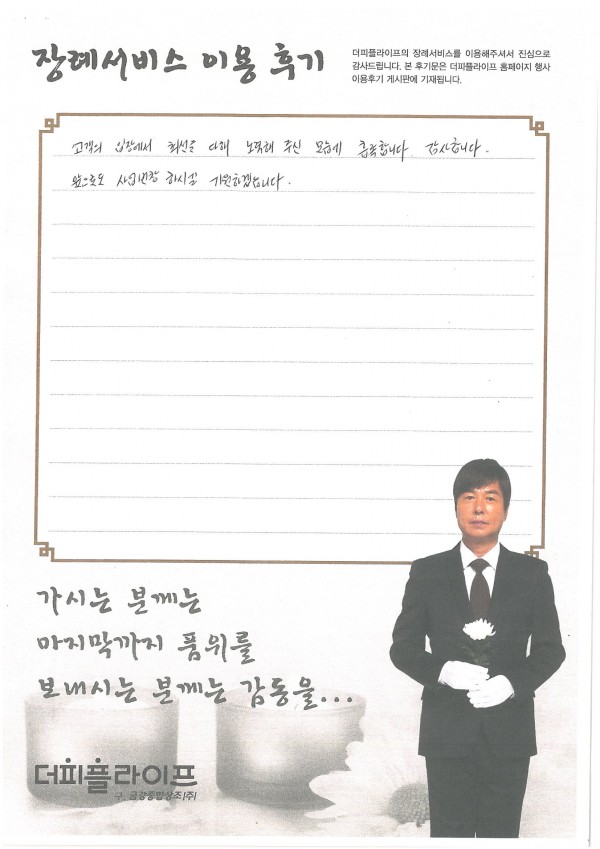 장례서비스 이용 후기
더피플라이프의 장례서비스를 이용해주셔서 진심으로
감사드립니다. 본 후기문은 더피플라이프 홈페이지 행사
이용후기 게시판에 기재됩니다.
고객의 입장에서 최선을 다해 노력해 주신 모습에 흡족합니다. 감사합니다.
앞으로도 사업번창 하시길 기원하겠습니다.
가시는 분께는
마지막까지 품위를
보내시는 분께는 감동을...
더피플라이프
구. 금강종합상조(주)